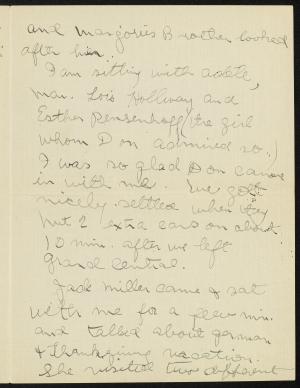 and Marjories Brother looked
after him.
I am sitting with adele,
mar. Lois Hollway and
Esther Rensenhoff (the girl
whom Don admired so.)
I was so glad Don came
in with me. We got
nicely settled when they
put 2 extra cars on about
10 min. after we left
Grand Central.
Jack Miller came & sat
with me for a few min.
and talked about german
& Thanksgiving vacation.
She visited two different